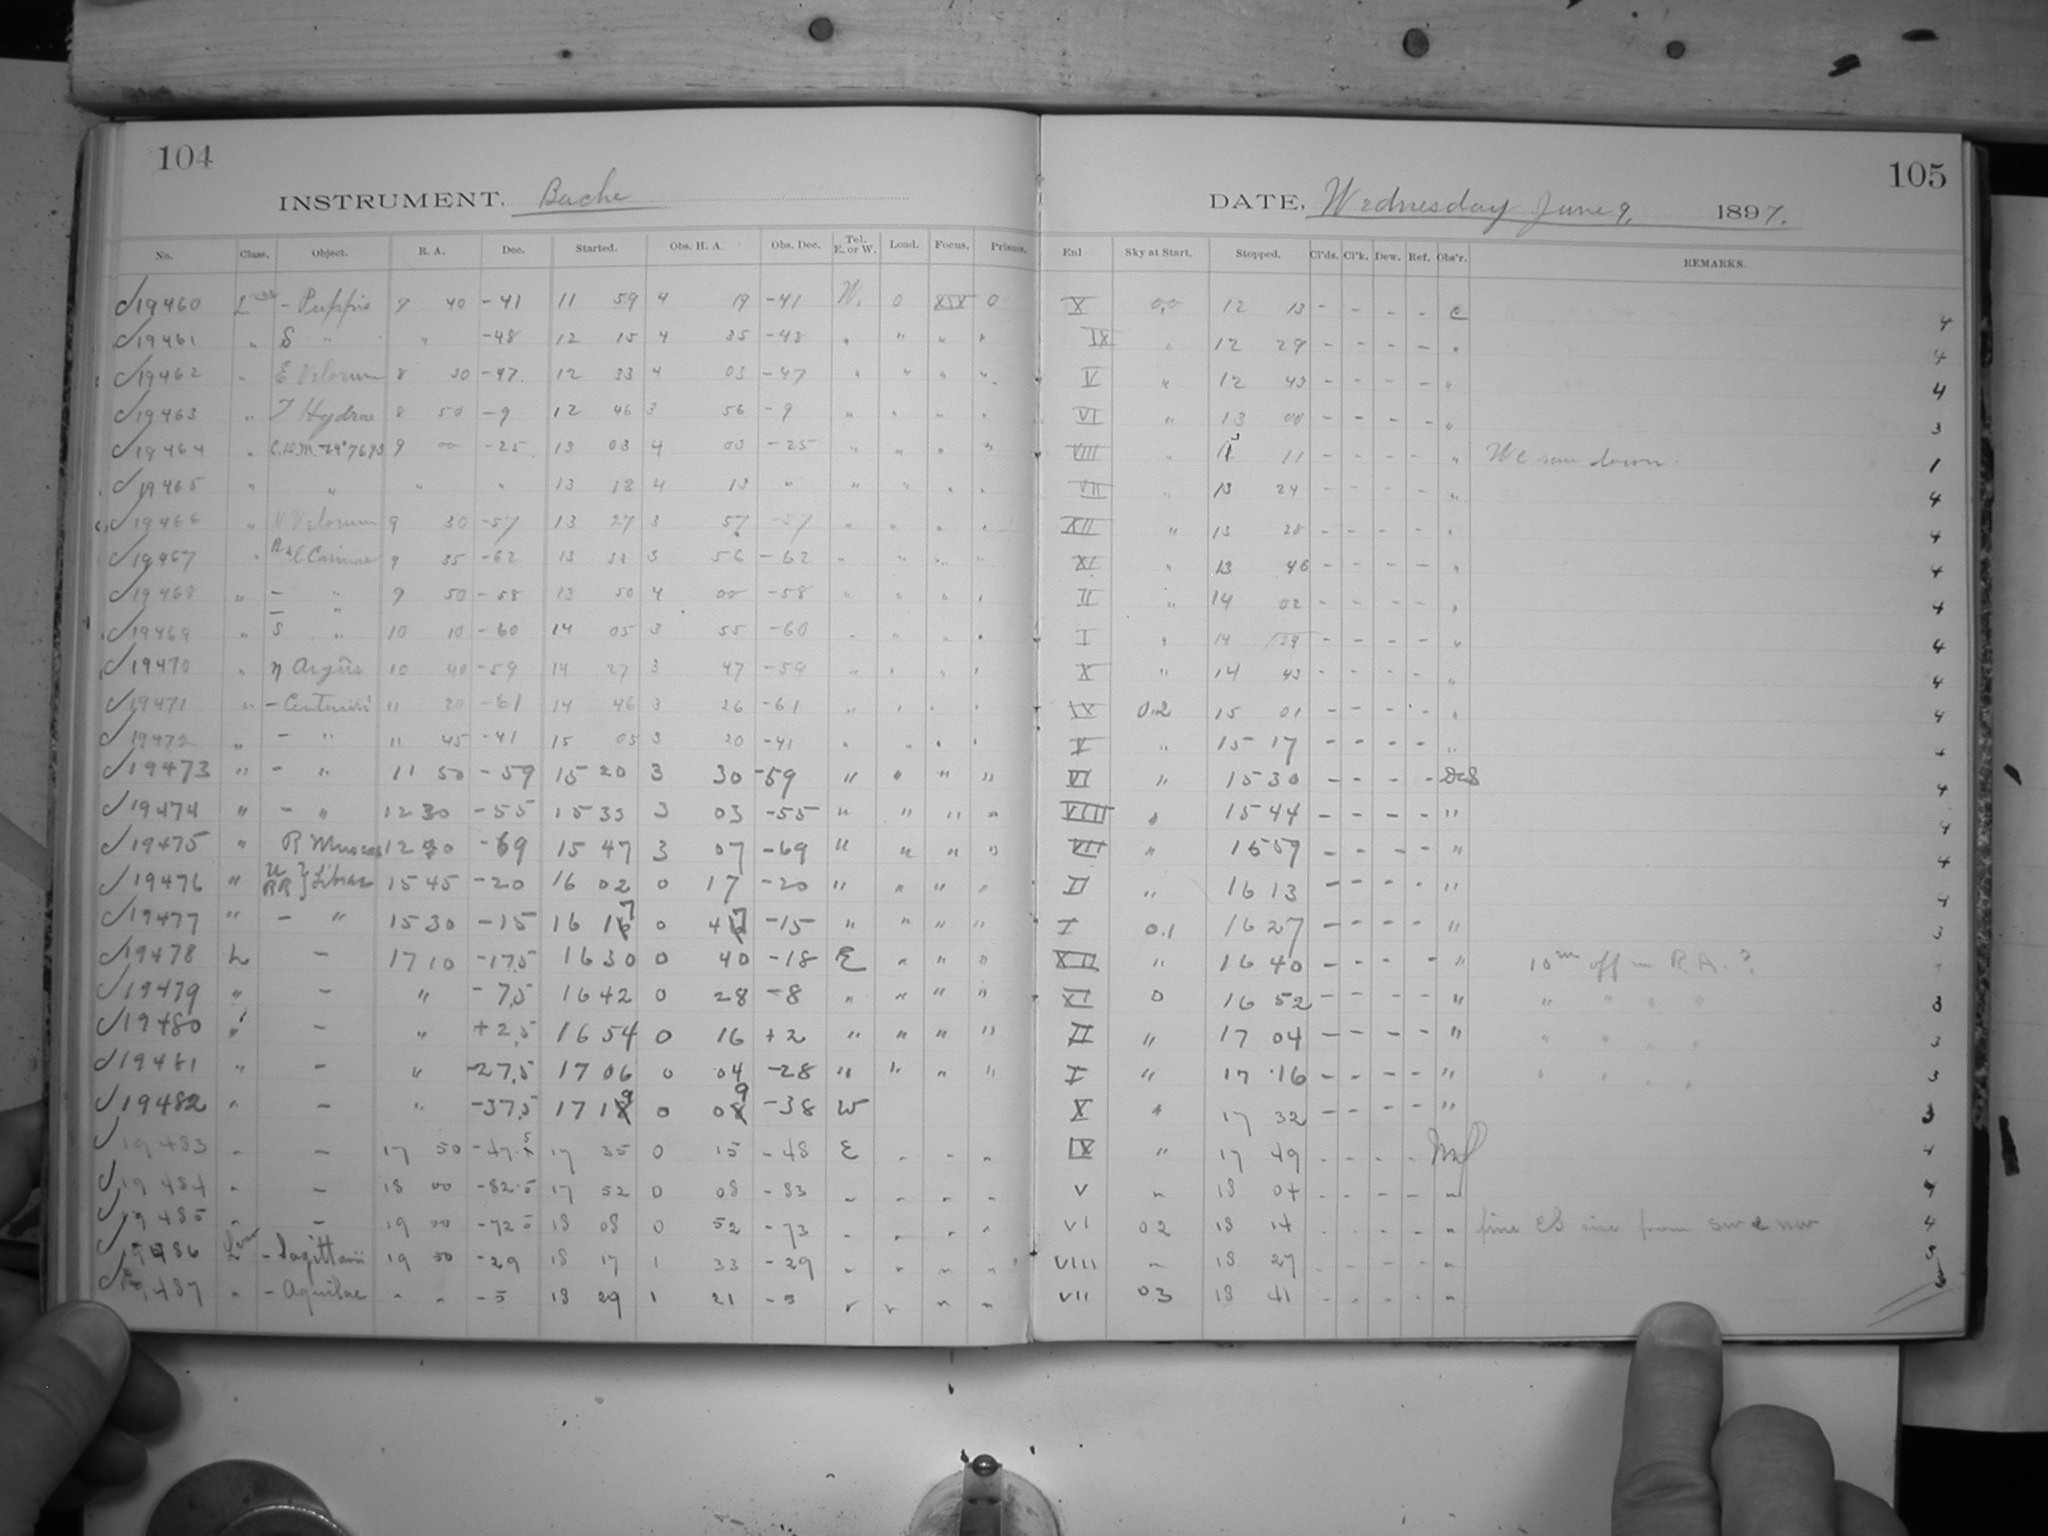 104
105
INSTRUMENT, Bache
DATE, Wednesday June 9, 1897.
No. Class. Object. R. A. Dec. Started. Obs. H. A. Obs. Dec. Tel. E. or W. Load. Focus. Prisms. Enl Sky at Start. Stopped. Cl'ds. Cl'k. Dew. Ref. Obs'r. REMARKS.
19460 - Puppis 7 40 -41 11 59 4 19 -41 W. 0 XIX 0 X 0,0 12 13 - - - - C 4
19461 " S " " -48 12 15 4 35 -48 " " " " IX " 12 29 - - - - " 4
19462 " E Velorum 8 30 -47 12 33 4 03 -47 " " " " V " 12 43 - - - - " 4
19463 " T Hydrae 8 50 -9 12 46 3 56 -9 " " " " VI " 13 00 - - - - " 3
19464 " C.D.M. -24°7693 9 00 -25 13 03 4 03 -25 " " " " VIII " 13 11 - - - - " We saw down 1
19465 " " " " 13 12 4 13 " " " " " VII " 13 24 - - - - " 4
19466 " N Velorum 9 30 -57 13 27 3 57 -57 " " " " XII " 13 28 - - - - " 4
19467 " R & l Carinae 9 35 -62 13 31 3 56 -62 " " " " XI " 13 46 - - - - " 4
19468 " - " 9 50 -58 13 50 4 00 -58 " " " " II " 14 02 - - - - " 4
19469 " S " 10 10 -60 14 05 3 55 -60 " " " " I " 14 24 - - - - " 4
19470 " η Argûs 10 40 -59 14 27 3 47 -59 " " " " X " 14 43 - - - - " 4
19471 " - Centauri 11 20 -61 14 46 3 26 -61 " " " " IX 0.2 15 01 - - - - " 4
19472 " - " 11 45 -41 15 05 3 20 -41 " " " " V " 15 17 - - - - " 4
19473 " - " 11 50 -59 15 20 3 30 -59 " " " " VI " 15 30 - - - - DeS 4
19474 " - " 12 30 -55 15 33 3 03 -55 " " " " VIII " 15 44 - - - - " 4
19475 " R Muscae 12 40 -69 15 47 3 07 -69 " " " " VII " 15 57 - - - - " 4
19476 " U RR } Librae 15 45 -20 16 02 0 17 -20 " " " " II " 16 13 - - - - " 4
19477 " - " 15 30 -15 16 17 0 47 -15 " " " " I 0.1 16 27 - - - - " 3
19478 L - 17 10 -17.5 16 30 0 40 -18 E " " " XII " 16 40 - - - - " 10m off in R.A.?
19479 " - " -7.5 16 42 0 28 -8 " " " " XI 0 16 52 - - - - " " " " " 3
19480 " - " +2.5 16 54 0 16 +2 " " " " II " 17 04 - - - - " " " " " 3
19481 " - " -27.5 17 06 0 04 -28 " " " " I " 17 16 - - - - " " " " " 3
19482 " - " -37.5 17 19 0 09 -38 W X " 17 32 - - - - " 3
19483 " - 17 50 -47.5 17 35 0 15 -48 E " " " IX " 17 49 - - - - 4
19484 " - 18 00 -82.5 17 52 0 08 -83 " " " " V " 18 04 - - - - " 4
19485 " - 19 00 -72.5 18 08 0 52 -73 " " " " VI 02 18 14 - - - - " fine CS rise from SW & NW 4
19486 - Sagittarii 19 50 -29 18 17 1 33 -29 " " " " VIII " 18 27 - - - - " 3
19487 " - Aquilae " " -5 18 29 1 21 -5 " " " " VII 03 18 41 - - - - " 3